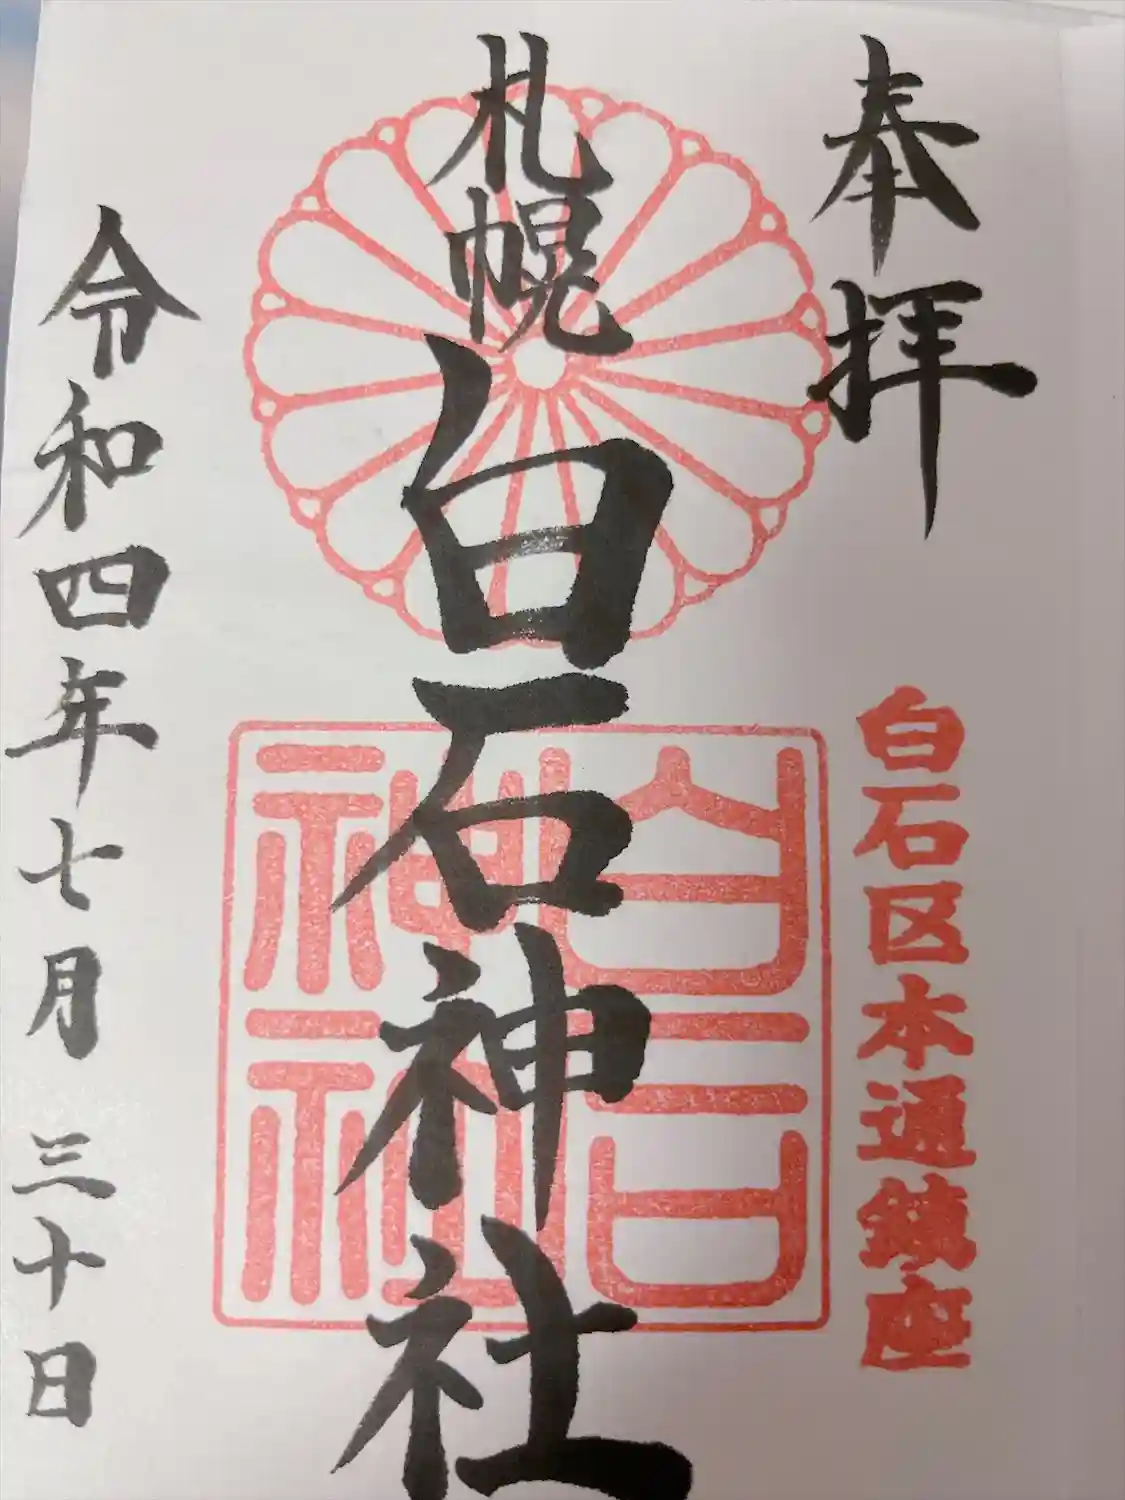 奉拝
白石区本通鎮座
札幌白石神社
白石神社
令和四年七月三十日